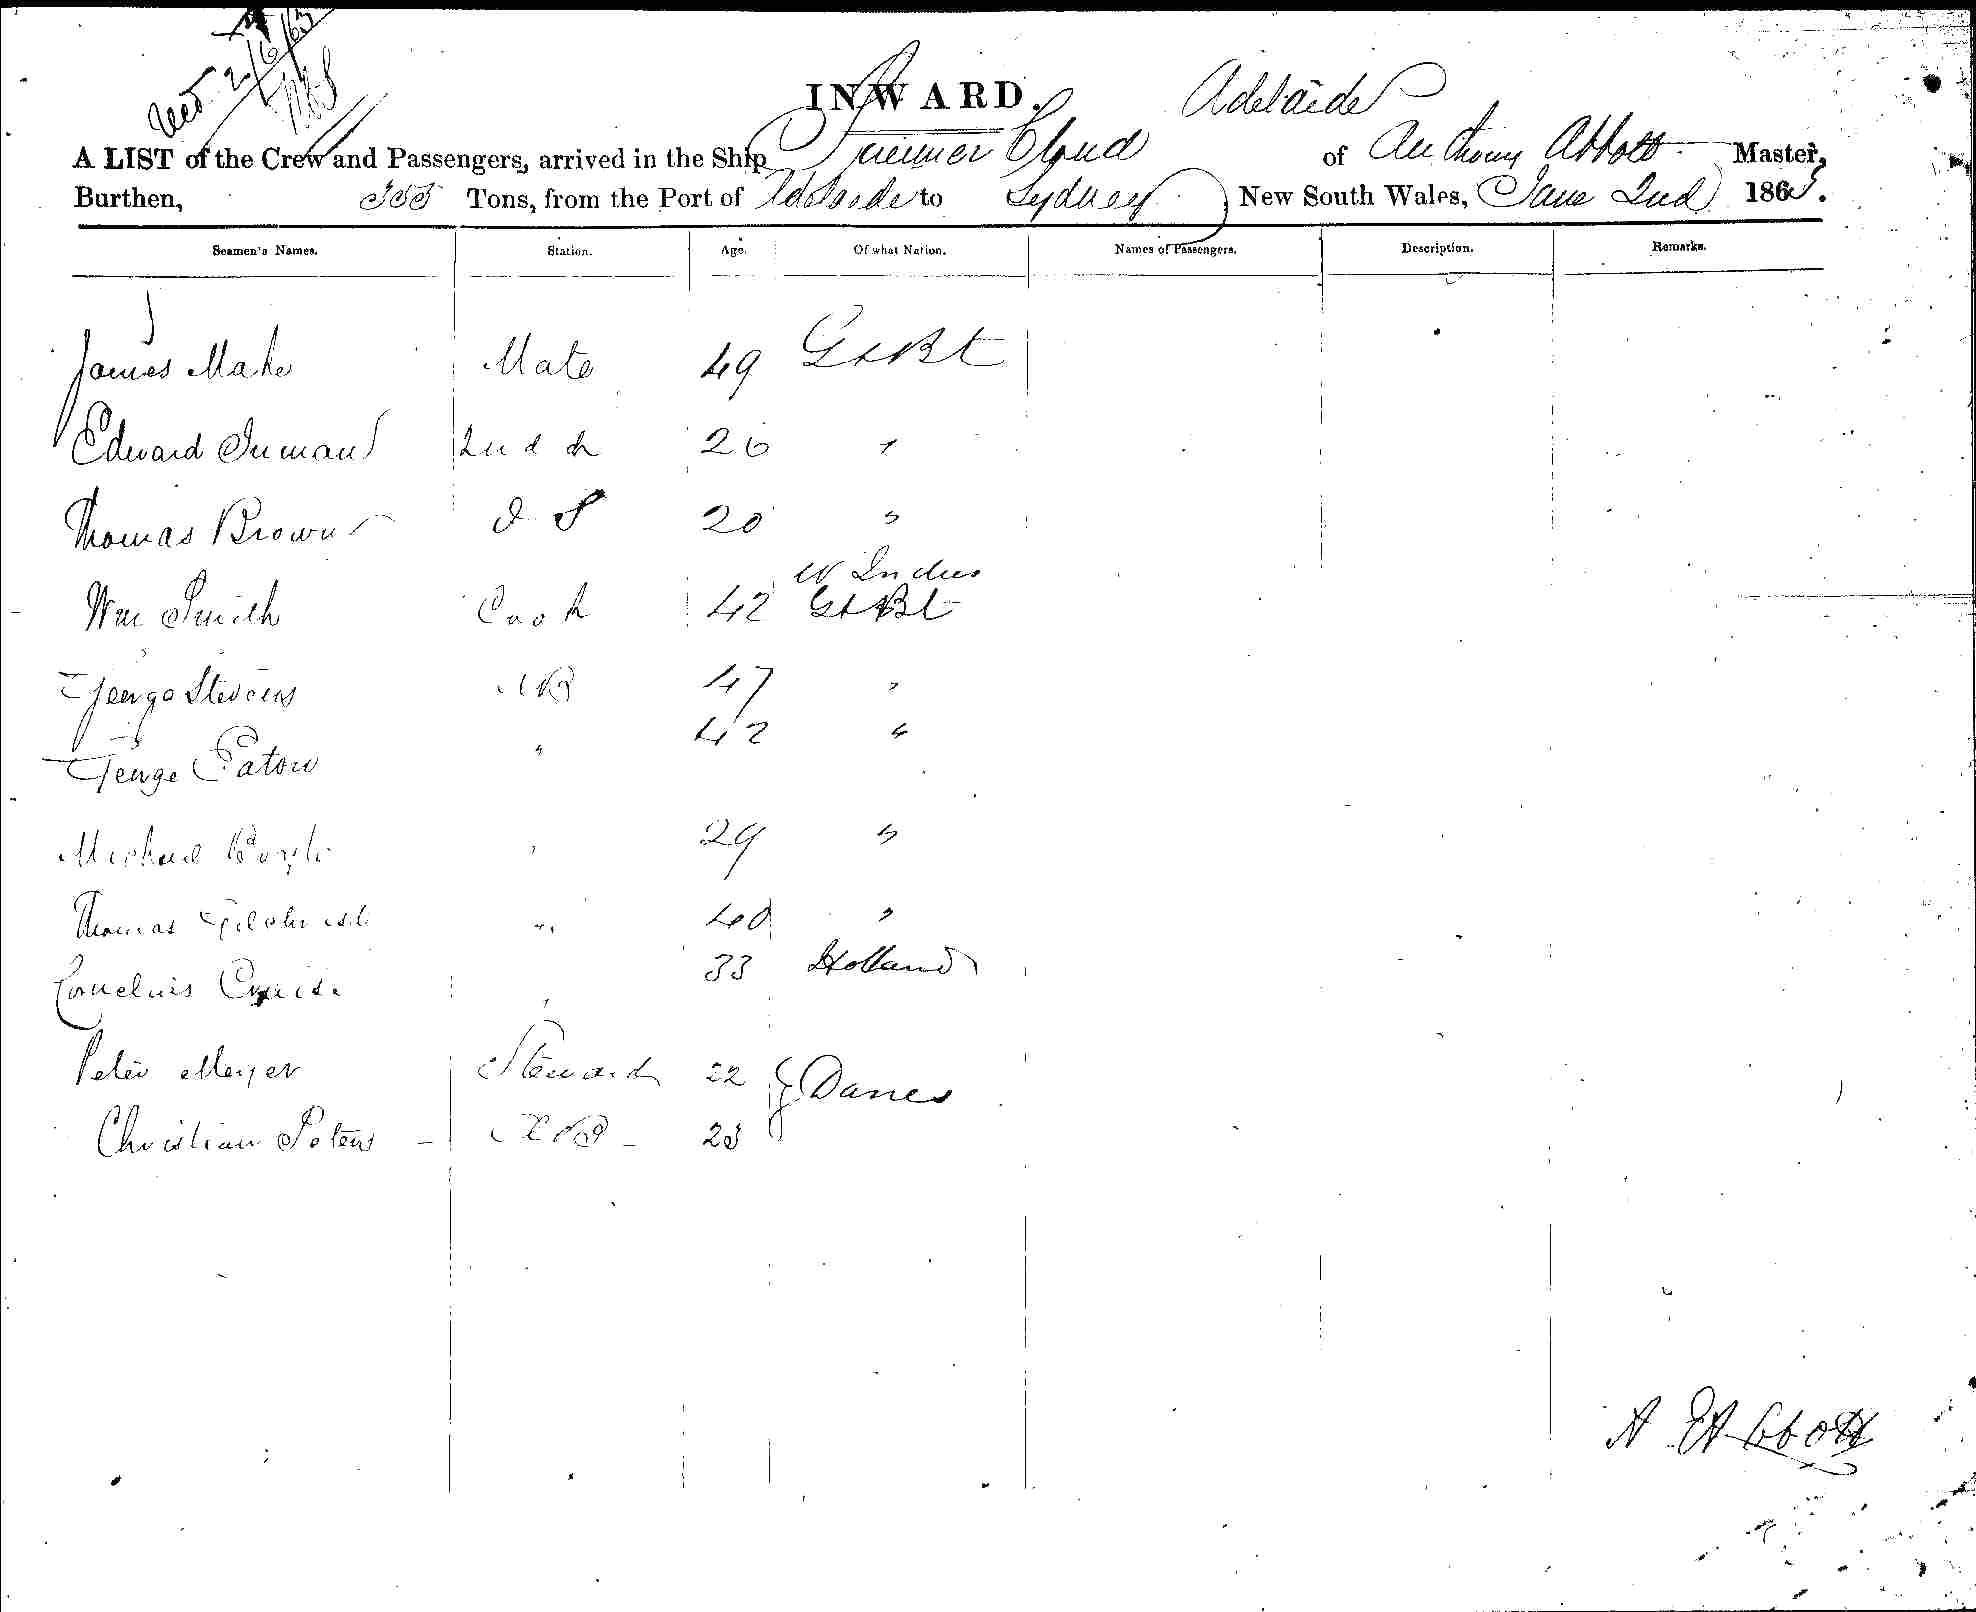 2/6/63
INWARD.
A LIST of the Crew and Passengers, arrived in the Ship Summer Cloud Adelaide of Anthony Abbott Master,
Burthen, 355 Tons, from the Port of Adelaide to Sydney New South Wales, June 2nd 1863.
Seamen's Names. Station. Age. Of what Nation. Names of Passengers. Description. Remarks.
James Make Mate 49 Gt Bt
Edward Inman 2nd do 26 "
Thomas Brown O S 20 "
W Indies
Wm Smith Cook 42 Gt Bt
George Stevens AB 47 "
George Eaton " 42 "
Michael " 29 "
Thomas Gilchrist " 40 "
Cornelius " 33 Holland
Peter Meyer Steward 22 } Danes
Christian Peters - AB - 23
A Abbott